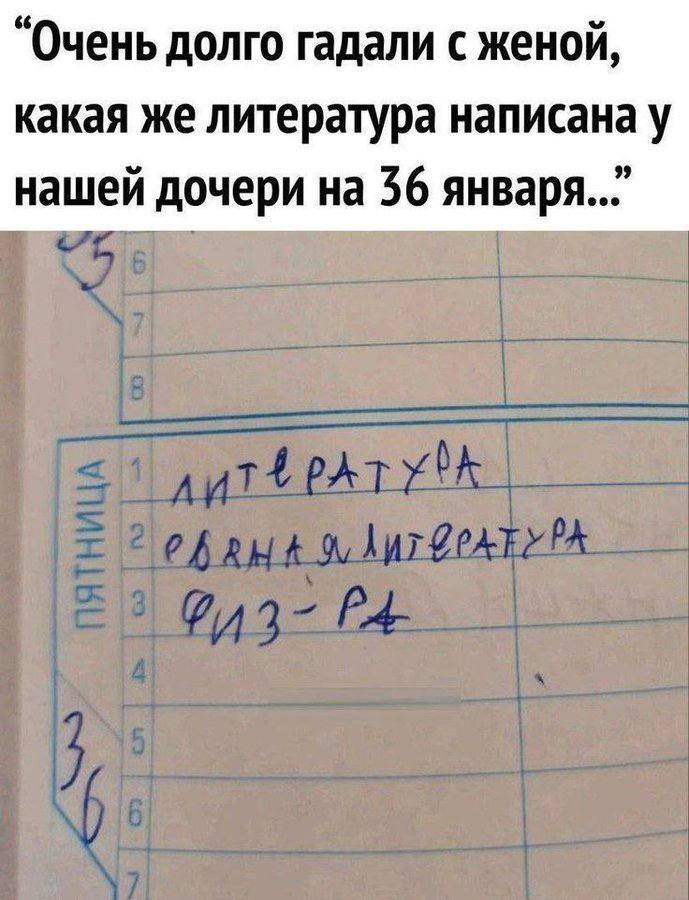 “Очень долго гадали с женой,
какая же литература написана у
нашей дочери на 36 января...”
5
6
7
8
ПЯТНИЦА
1 ЛИТЕРАТУРА
2 ЛИТЕРАТУРА
3 ФИЗ-РА
4
36
5
6
7